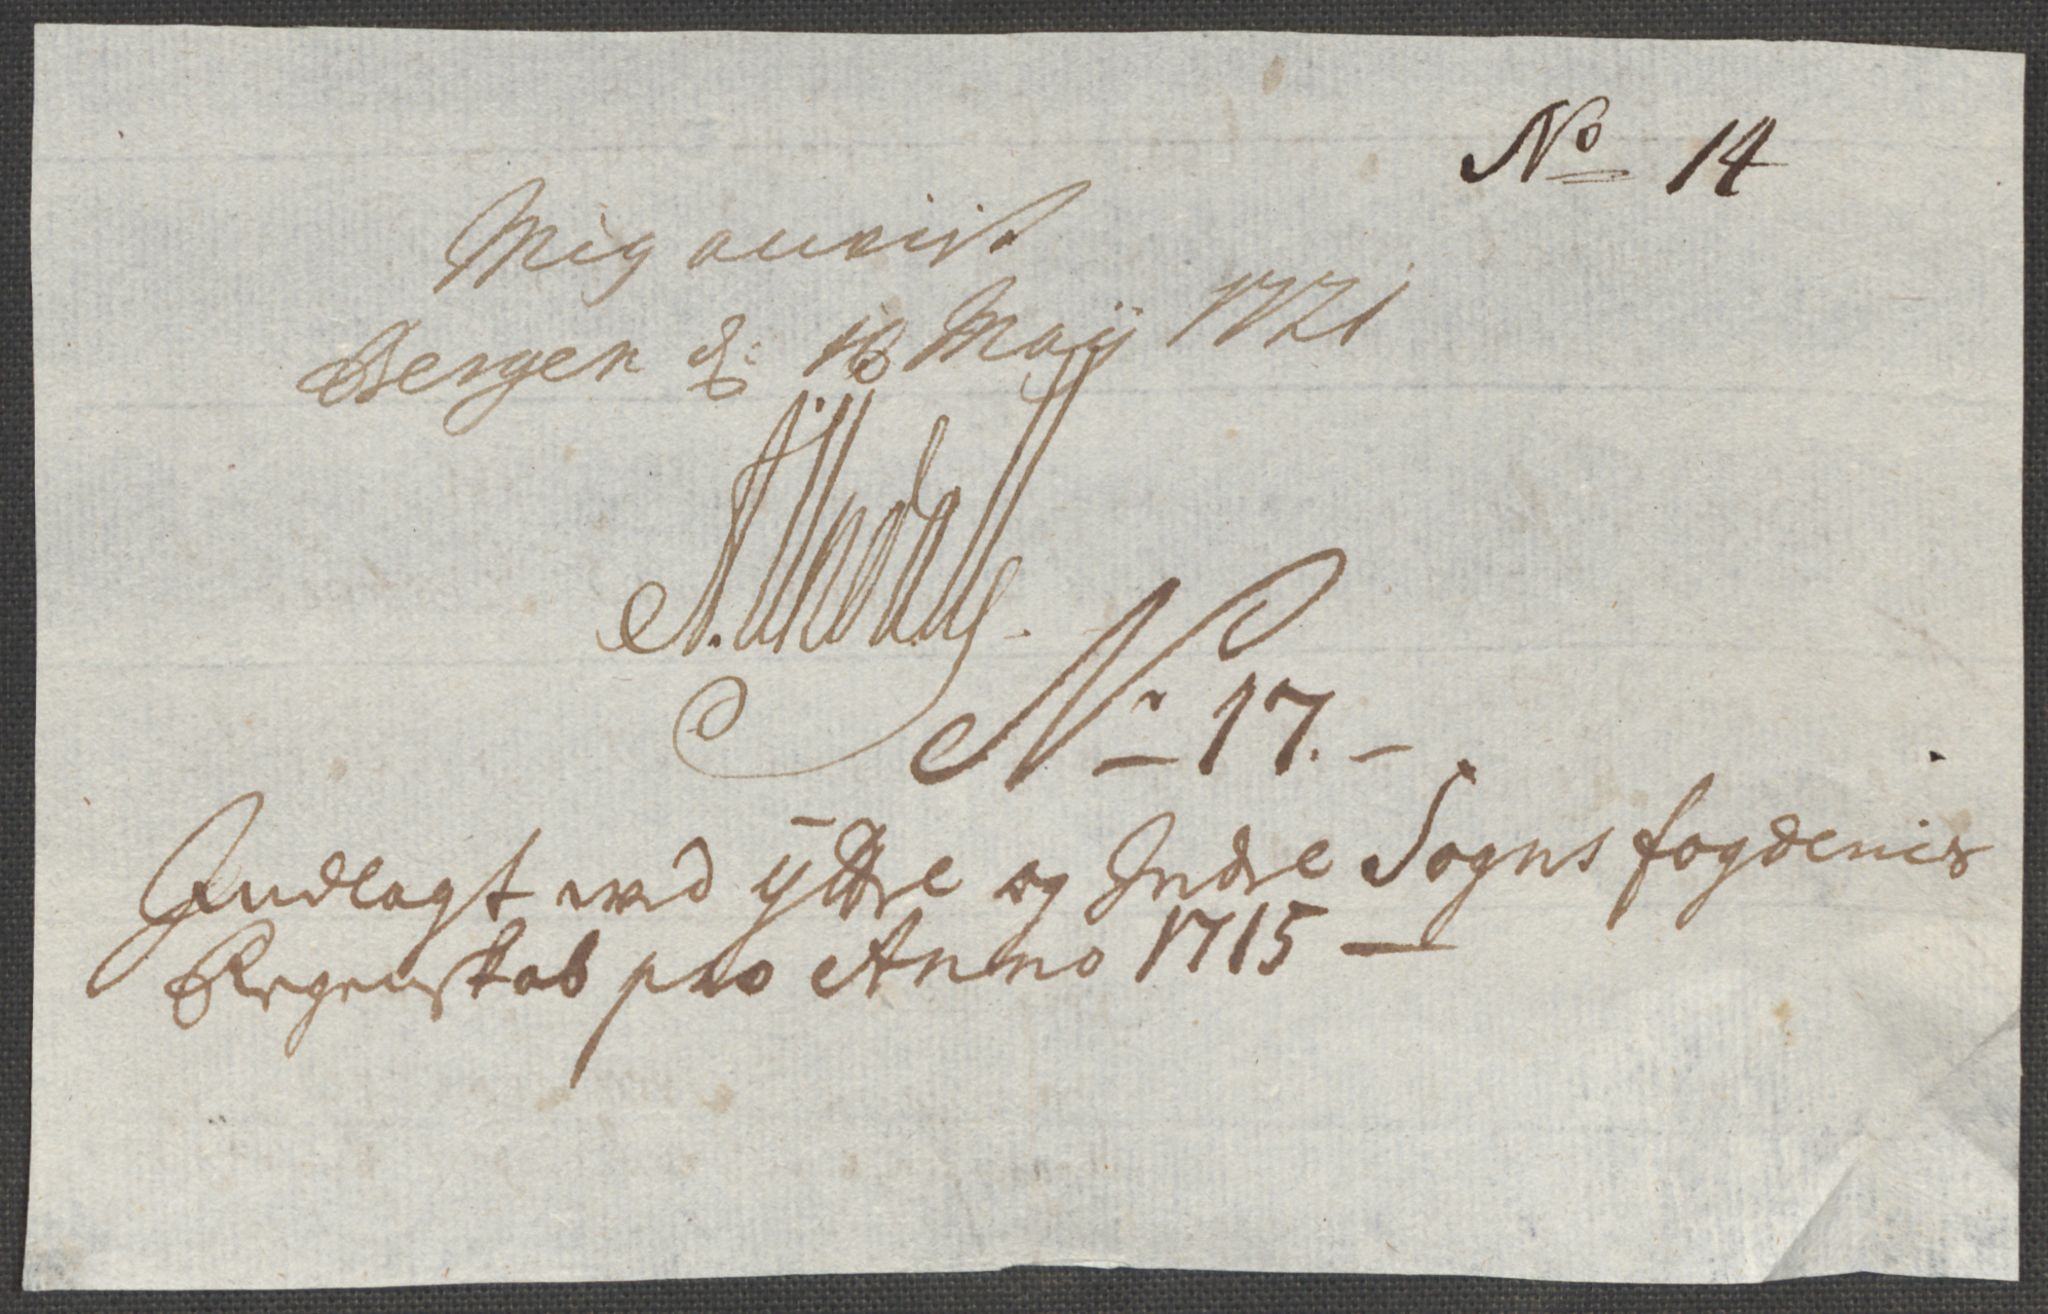 No 14
Mig anvist
Bergen d: 16 Maÿ 1721
N: 17.
Indlagt ved ÿttre og Indre Sogns fogderies
Regenskab pro Anno 1715